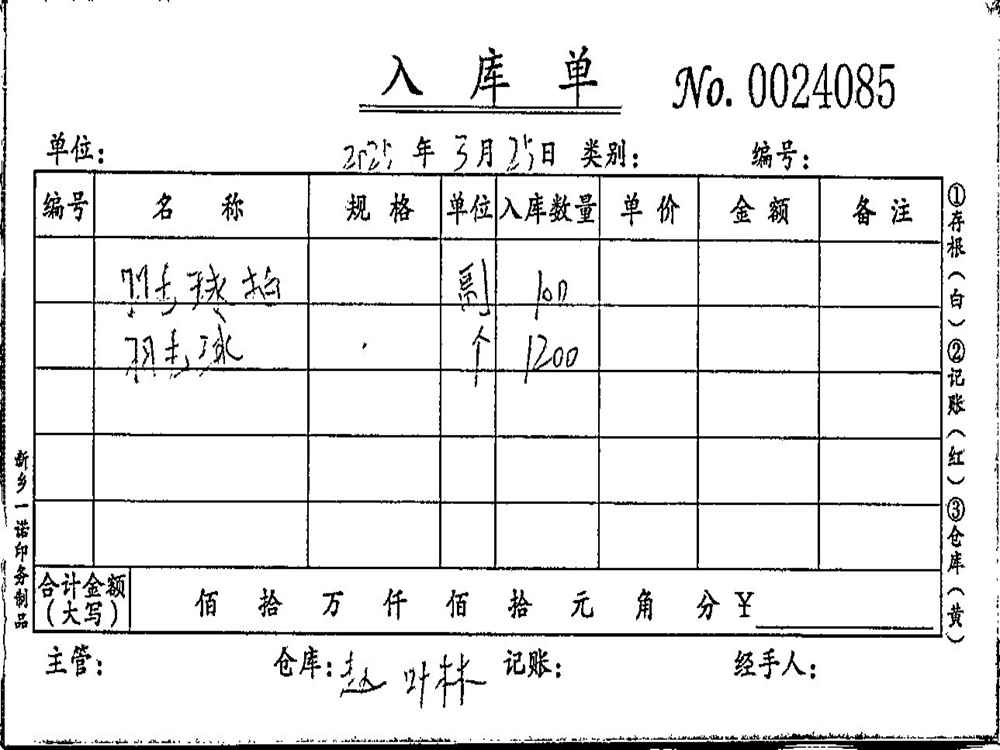 入库单 No. 0024085
单位： 2025年3月25日 类别： 编号：
编号 名称 规格 单位 入库数量 单价 金额 备注
羽毛球拍 副 100
羽毛球 个 1200
合计金额（大写） 佰 拾 万 仟 佰 拾 元 角 分 ¥
主管： 仓库：赵叶林 记账： 经手人：
①存根（白）②记账（红）③仓库（黄）
新乡一诺印务制品